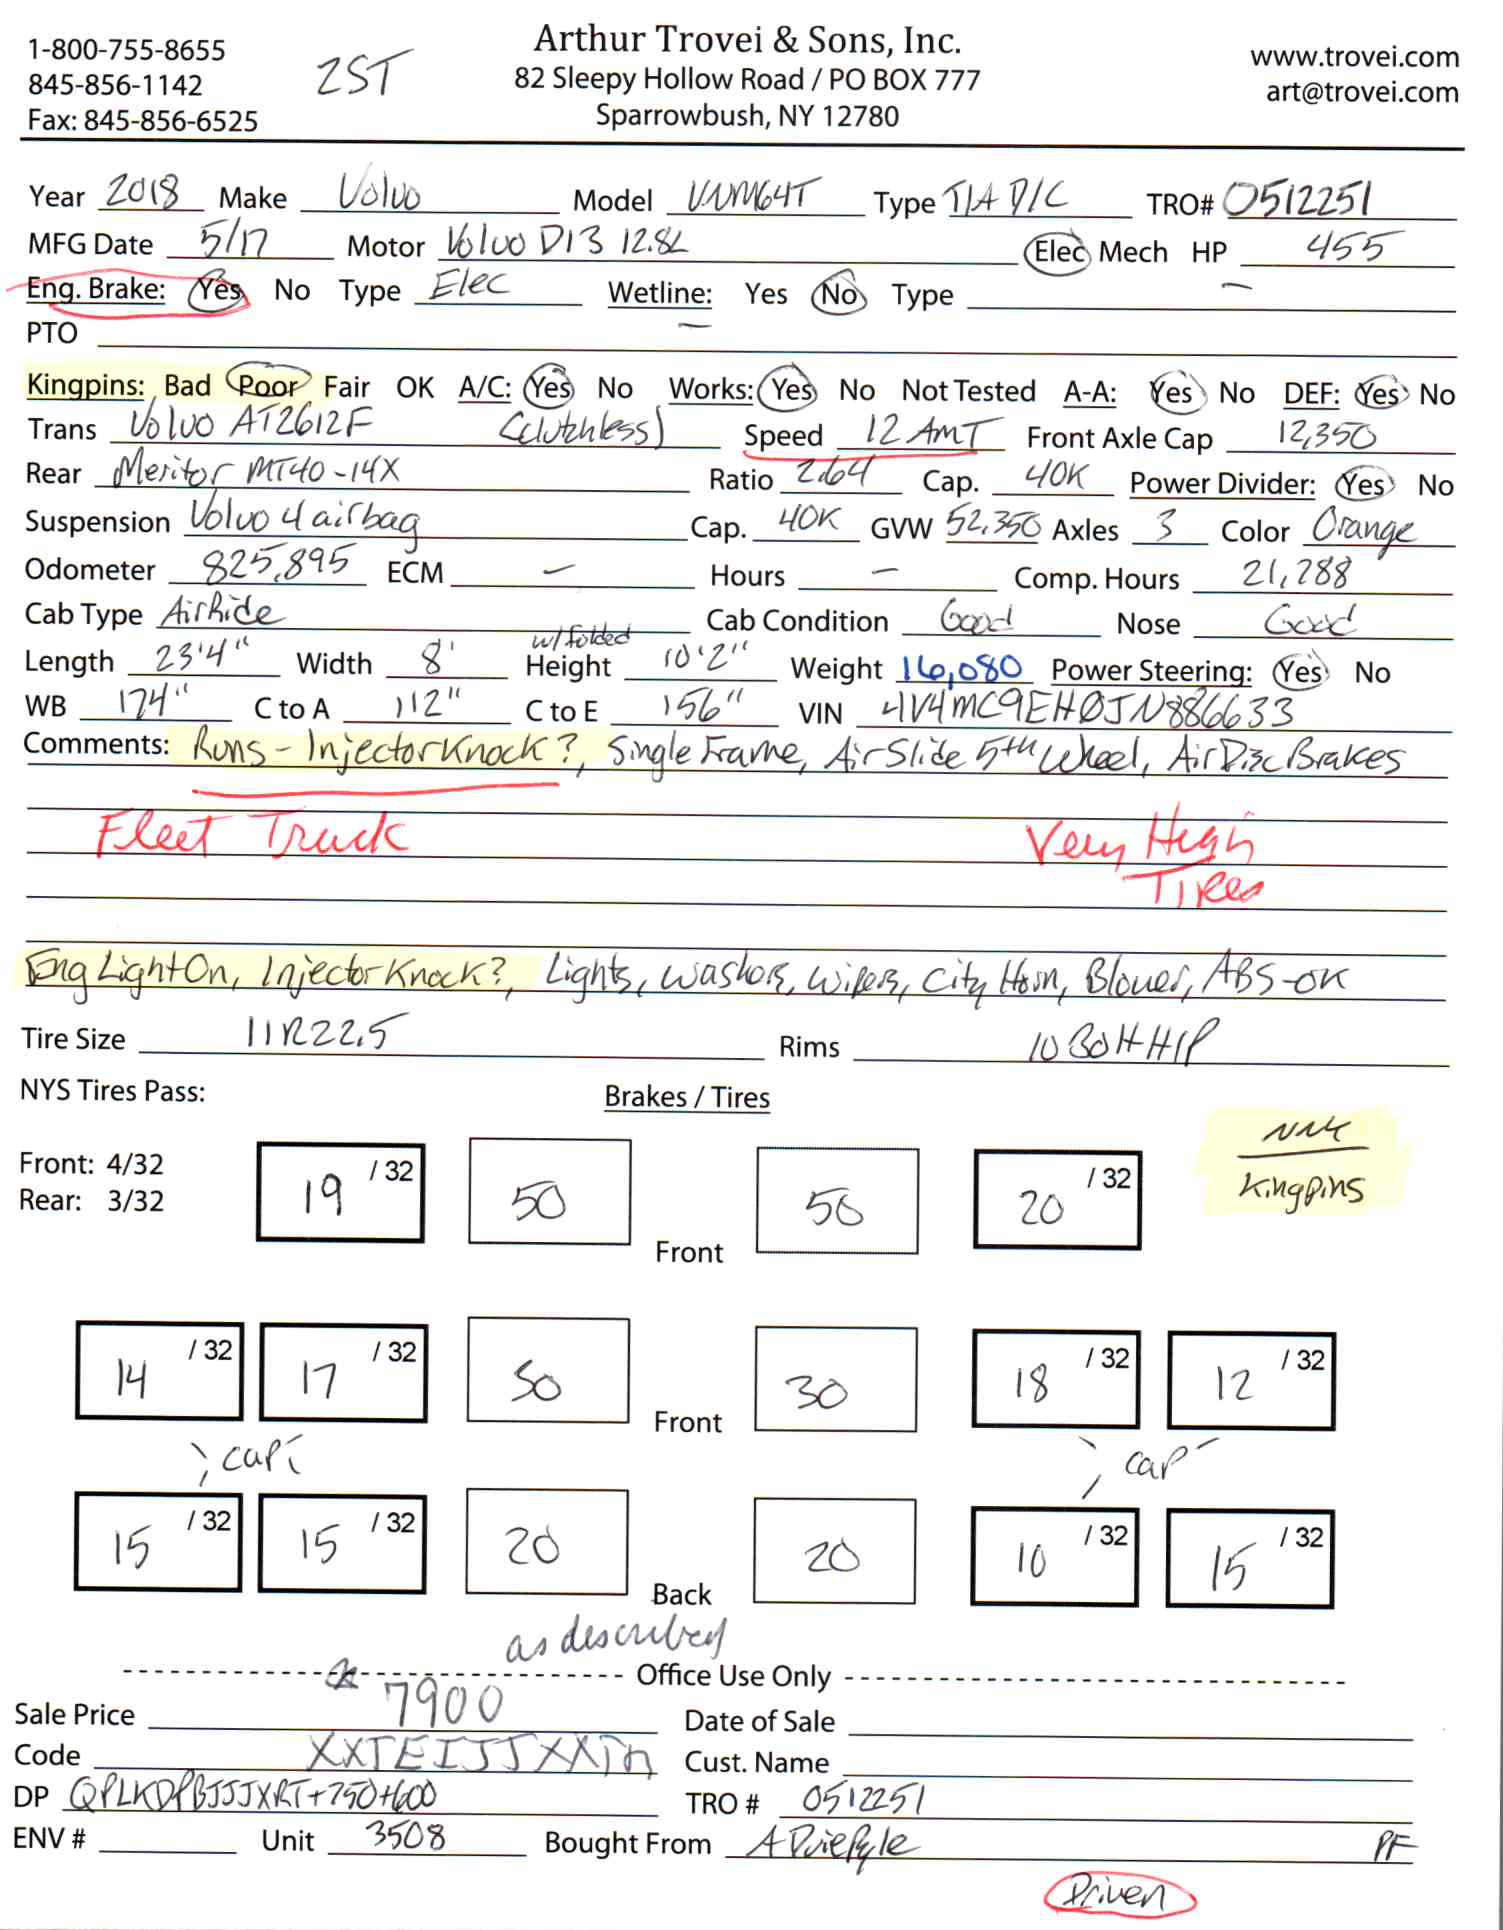 1-800-755-8655
845-856-1142
Fax: 845-856-6525
2ST
Arthur Trovei & Sons, Inc.
82 Sleepy Hollow Road / PO BOX 777
Sparrowbush, NY 12780
www.trovei.com
art@trovei.com
Year 2018 Make Volvo Model VNM64T Type T/A D/C TRO# 0512251
MFG Date 5/17 Motor Volvo D13 12.8L Elec Mech HP 455
Eng. Brake: Yes No Type Elec Wetline: Yes No Type —
PTO —
Kingpins: Bad Poor Fair OK A/C: Yes No Works: Yes No Not Tested A-A: Yes No DEF: Yes No
Trans Volvo AT2612F (Clutchless) Speed 12 AMT Front Axle Cap 12,350
Rear Meritor MT40-14X Ratio 2.64 Cap. 40K Power Divider: Yes No
Suspension Volvo 4 airbag Cap. 40K GVW 52,350 Axles 3 Color Orange
Odometer 825,895 ECM — Hours — Comp. Hours 21,788
Cab Type AirRide Cab Condition Good Nose Good
Length 23'4" Width 8' w/folded Height 10'2" Weight 16,080 Power Steering: Yes No
WB 174" C to A 112" C to E 156" VIN 4V4MC9EH0JN886633
Comments: Runs - Injector Knock?, Single Frame, Air Slide 5th Wheel, Air Disc Brakes
Fleet Truck Very High
Tires
Eng Light On, Injector Knock?, Lights, Washers, Wipers, City Horn, Blower, ABS-OK
Tire Size 11R22.5 Rims 10 BOH HIP
NYS Tires Pass: Brakes / Tires
Front: 4/32
Rear: 3/32
19 /32 50 Front 50 20 /32
Kingpins
14 /32 17 /32 50 Front 30 18 /32 12 /32
cap cap
15 /32 15 /32 20 Back 20 10 /32 15 /32
as described
Office Use Only
Sale Price 7900 Date of Sale
Code XXTEIJJXXTn Cust. Name
DP QPLKDPBJJJXRT+750+600 TRO # 0512251
ENV # Unit 3508 Bought From A Duie Pyle PF
Driven